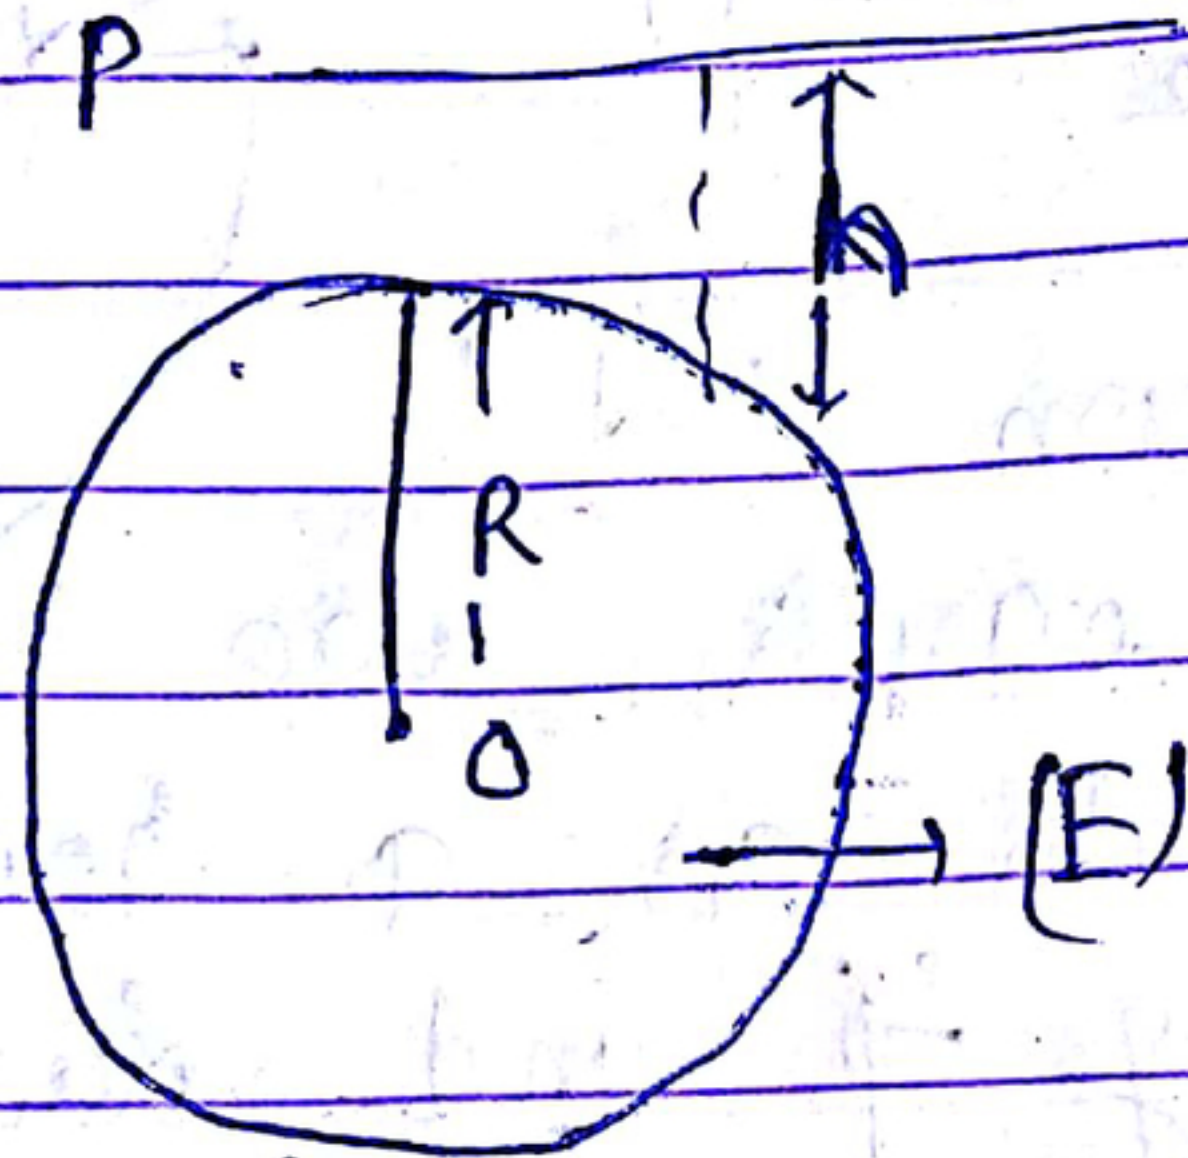 P
h
R
O
(E)